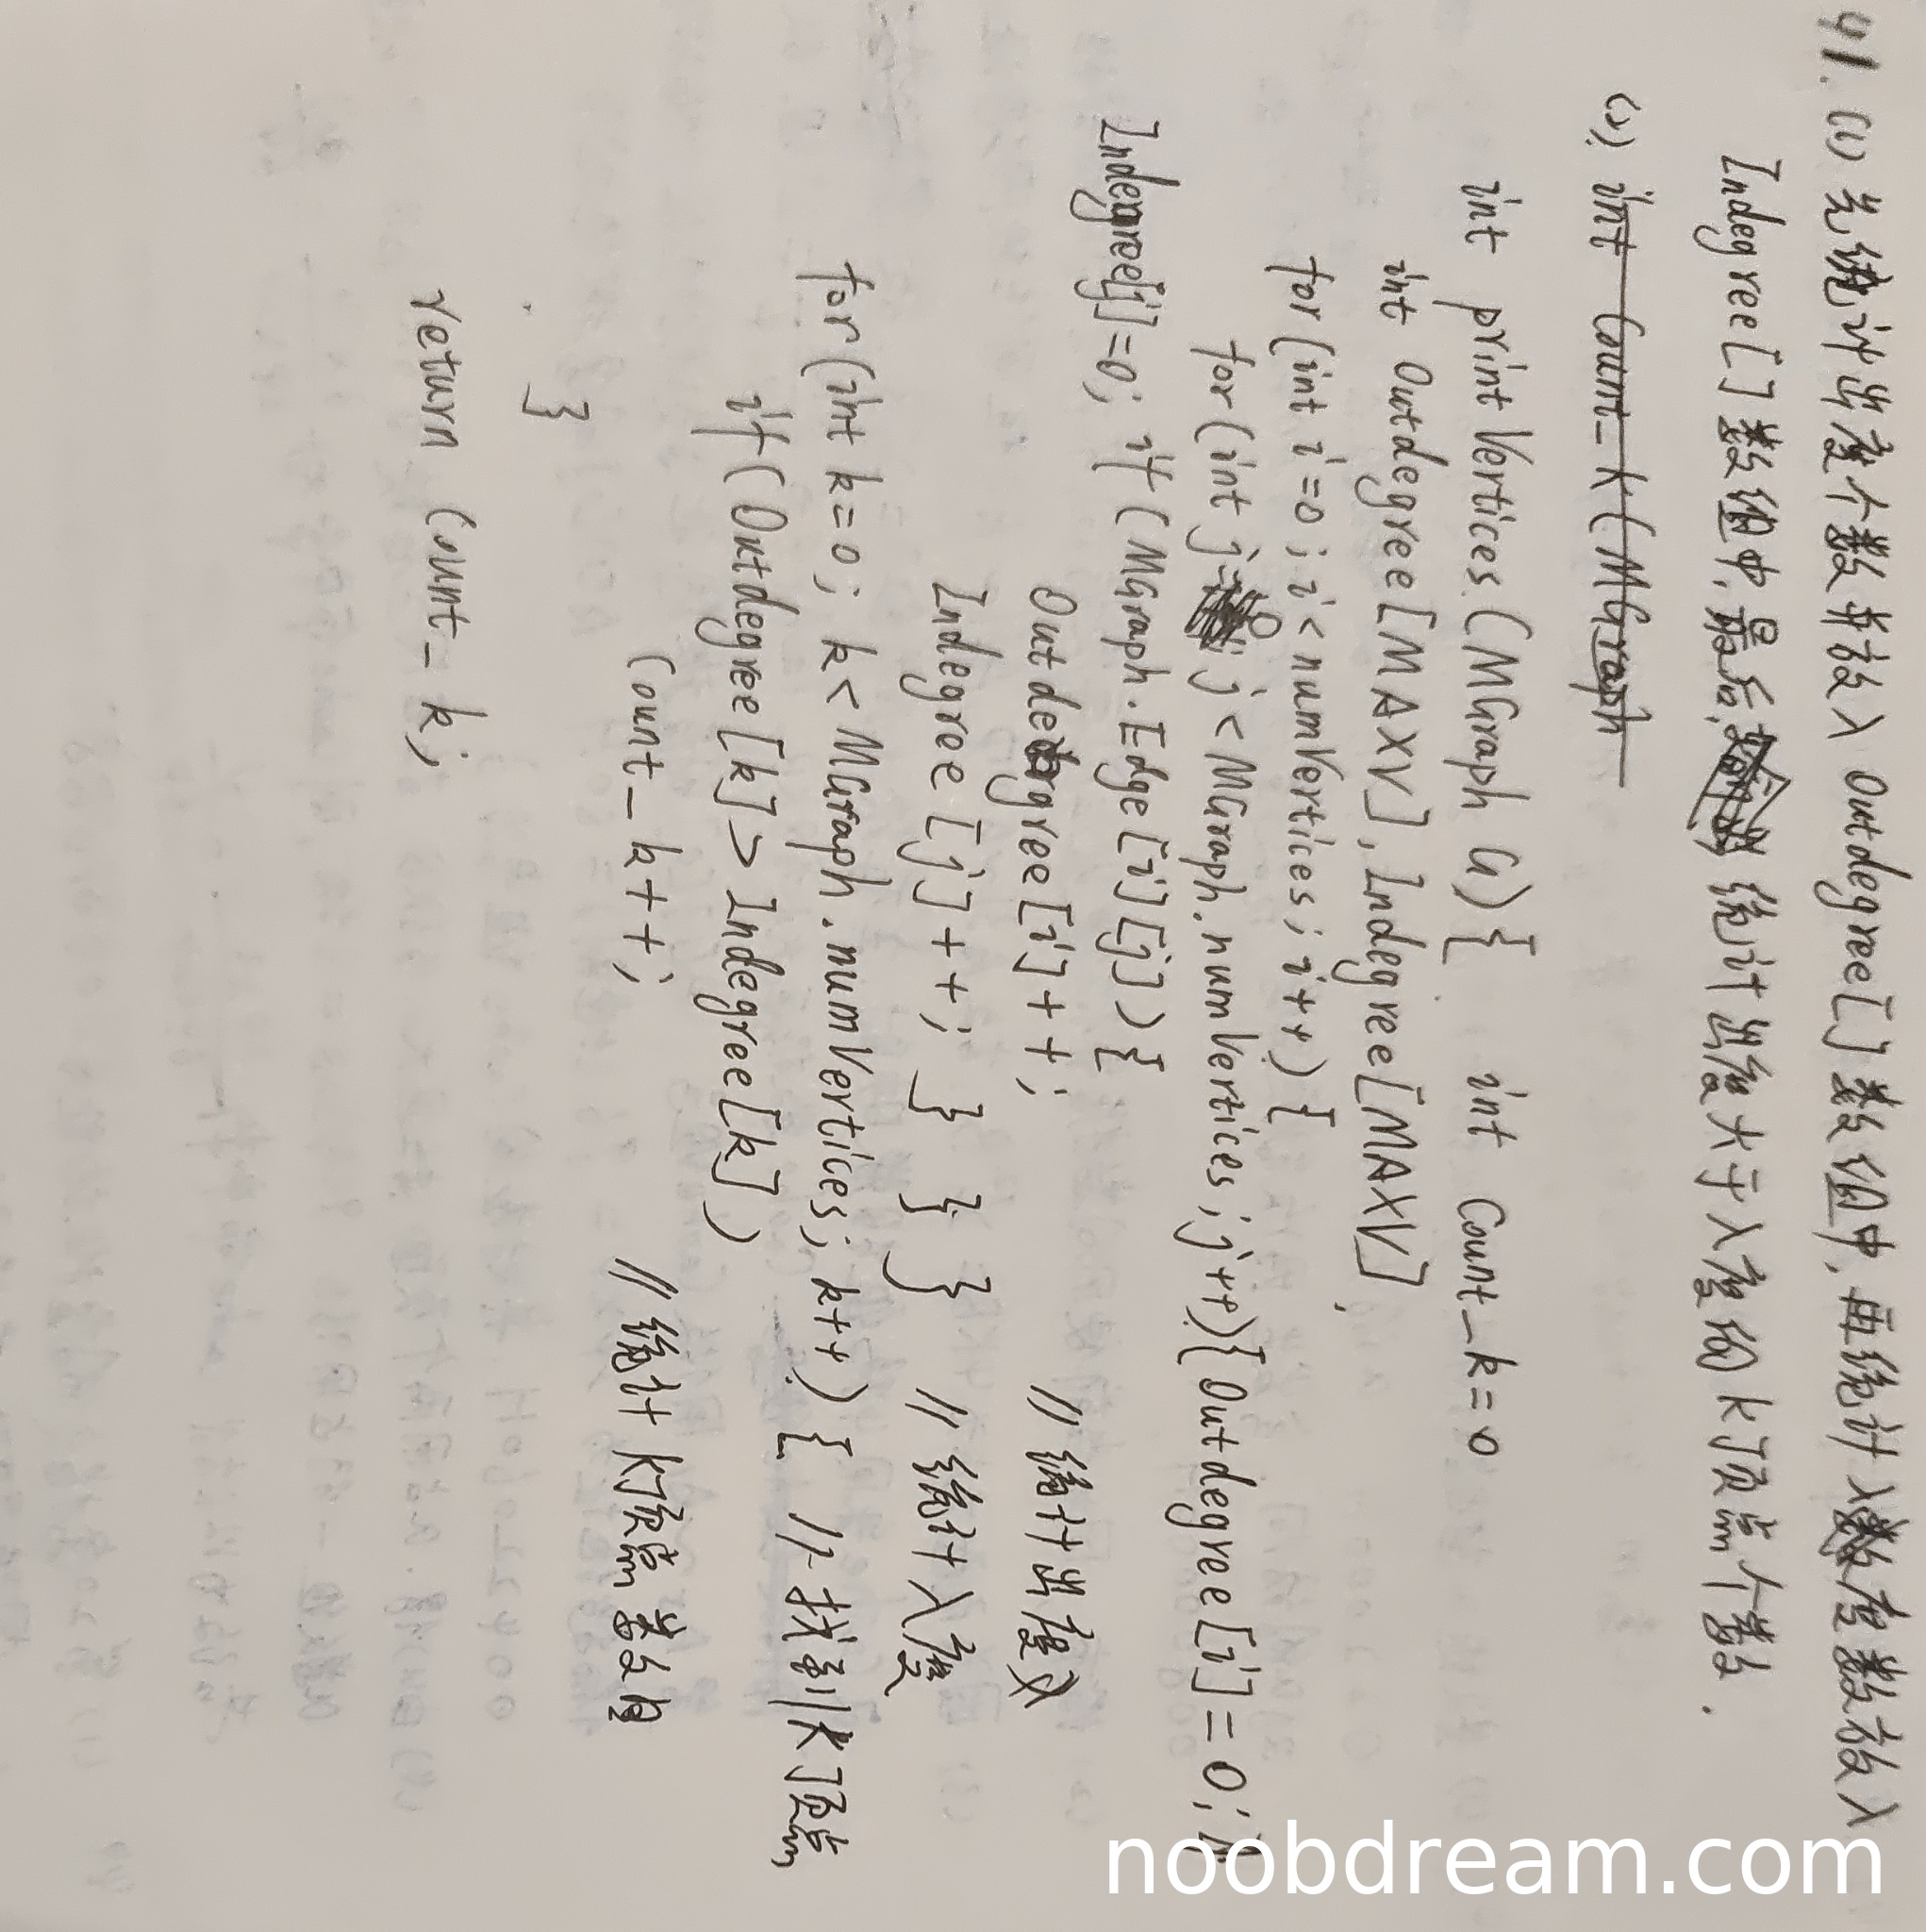 41. (1) 先统计出度个数并放入 Outdegree[] 数组中,再统计入度数放入
Indegree[] 数组中,最后 统计出度大于入度的K顶点个数.
(2) int Count_k(MGraph
int printVertices(MGraph G){ int Count_k=0
int Outdegree[MAXV],Indegree[MAXV],
for(int i=0;i<numVertices;i++){
for(int j=0 j<MGraph.numVertices;j++){Outdegree[i]=0;
Indegree[j]=0; if(MGraph.Edge[i][j]){
Outdegree[i]++; //统计出度
Indegree[j]++; } } } //统计入度
for(int k=0; k<MGraph.numVertices; k++){ //找到K顶点
if(Outdegree[k]>Indegree[k])
Count_k++; //统计K顶点数目
}
return Count_k;
noobdream.com